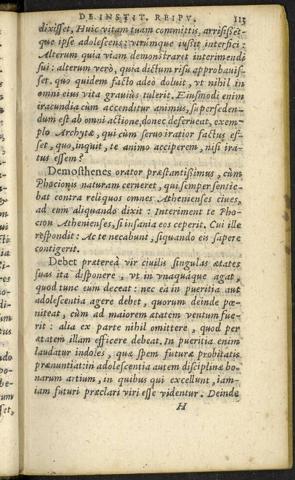 DE INSTIT. REIPV. 113
dixisset, Huic vitam tuam committis, arrisißet-
que ipse adolescens: vtrumque iußit interfici:
Alterum quia viam demonstraret interimendi
sui: alterum verò, quia dictum risu approbauiß-
set. quo quidem facto adeò doluit, vt nihil in
omni eius vita grauius tulerit. Eiusmodi enim
iracundia cùm accenditur animus, superseden-
dum est ab omni actione, donec deferueat, exem-
plo Archytæ, qui cùm seruo iratior factus es-
set, quo, inquit, te animo acciperem, nisi ira-
tus essem?
Demosthenes orator præstantißimus, cùm
Phocionis naturam cerneret, qui semper sentie-
bat contra reliquos omnes Athenienses ciues,
ad eum aliquando dixit: Interiment te Pho-
cion Athenienses, si insania eos ceperit. Cui ille
respondit: Ac te necabunt, siquando eis sapere
contigerit.
Debet prætereà vir ciuilis singulas ætates
suas ita disponere, vt in vnaquaque agat,
quod tunc eum deceat: nec ea in pueritia aut
adolescentia agere debet, quorum deinde pœ-
niteat, cùm ad maiorem ætatem ventum fue-
rit: alia ex parte nihil omittere, quod per
ætatem illam efficere debeat. In pueritia enim
laudatur indoles, quæ spem futuræ probitatis
prænuntiat: in adolescentia autem disciplinæ bo-
narum artium, in quibus qui excellunt, iam-
iam futuri præclari viri esse videntur. Deinde
H